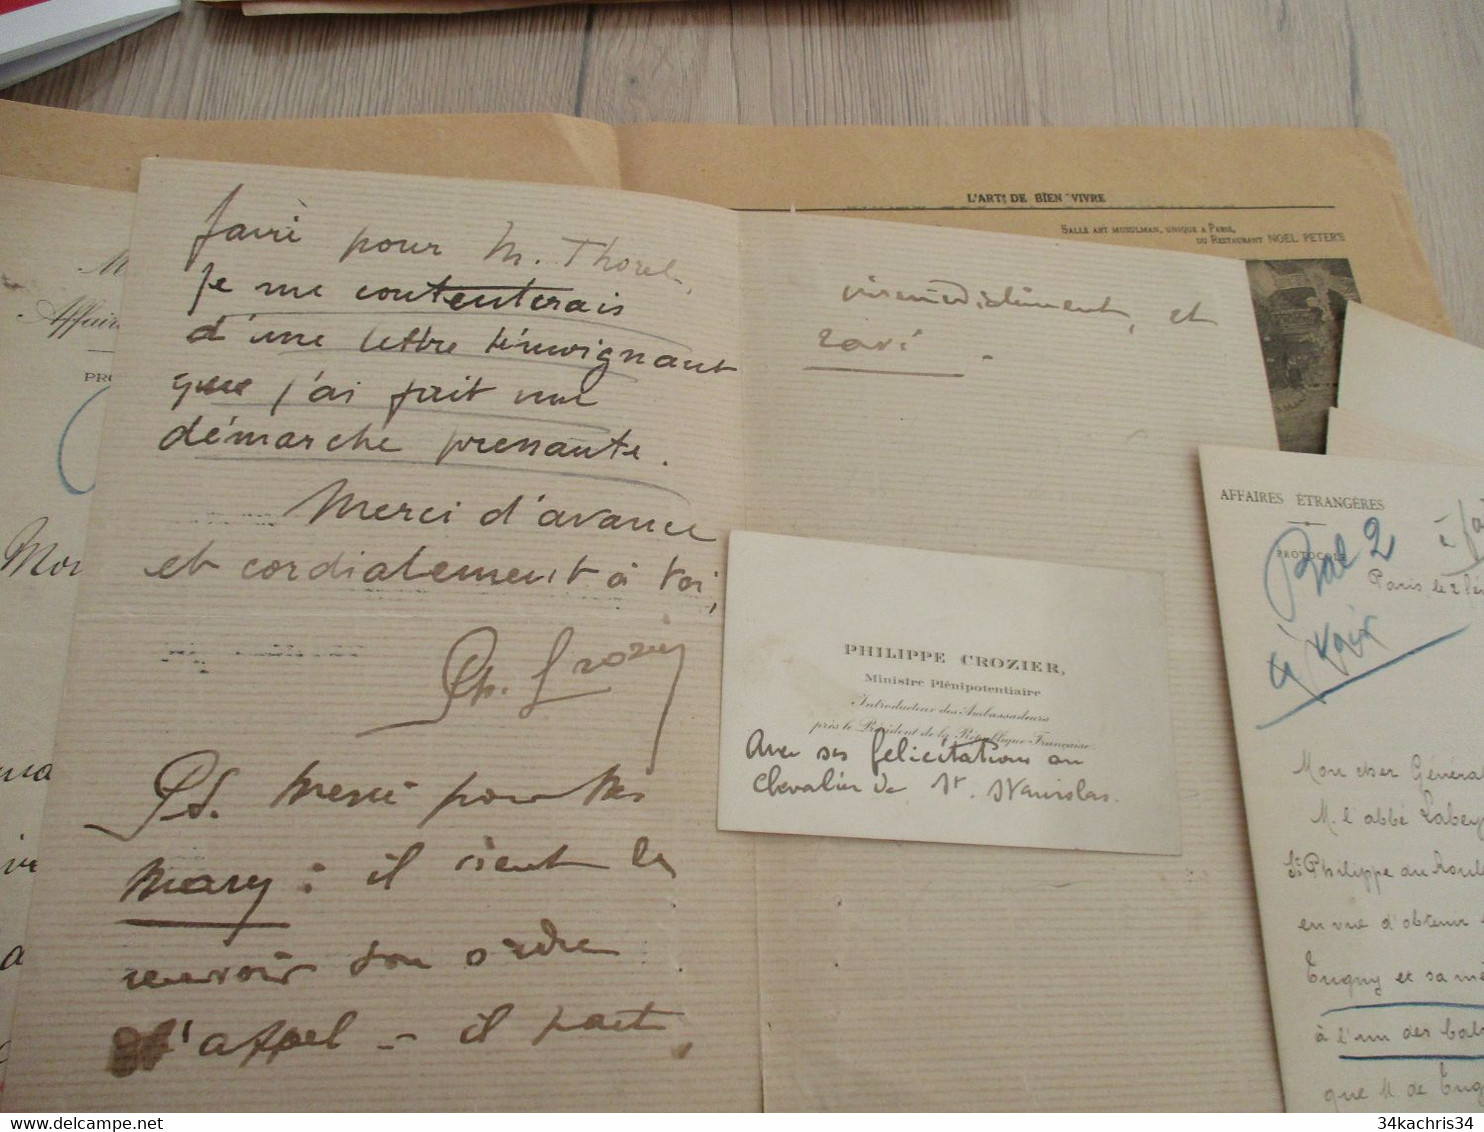 L'ART DE BIEN VIVRE
SALLE ART MUSULMAN, UNIQUE A PARIS,
DU RESTAURANT NOEL PETER'S
faire pour M. Thorel,
Je me contenterais
d'une lettre témoignant
que j'ai fait une
démarche pressante.
Merci d'avance
et cordialement à toi,
Ph. Crozier
PS. Merci pour
Mary : il vient de
recevoir son ordre
d'appel - il part
immédiatement, et
ravi.
PHILIPPE CROZIER,
Ministre Plénipotentiaire
Introducteur des Ambassadeurs
près le Président de la République Française
Avec ses félicitations au
Chevalier de St. Stanislas.
AFFAIRES ÉTRANGÈRES
PROTOCOLE
Bal 2
Paris, le 2
Mon cher Général
M. l'abbé Labey
St Philippe du Roule
en vue d'obtenir
Tugny et sa mè
à l'un des bals
que M de Tug
Affair
PRO
Mon
34kachris34